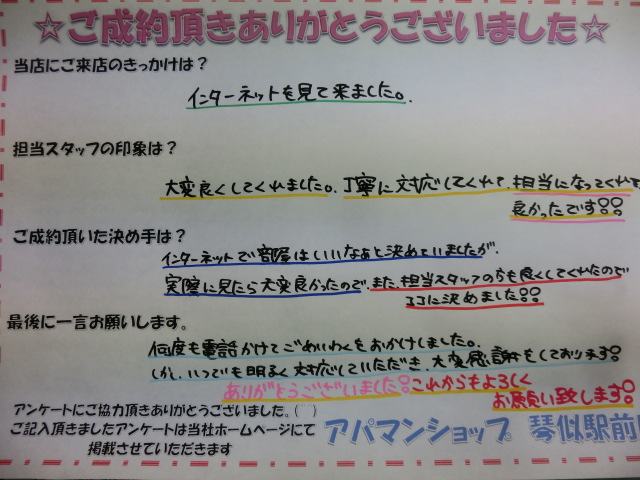 ☆ご成約頂きありがとうございました☆
当店にご来店のきっかけは？
インターネットを見て来ました。
担当スタッフの印象は？
大変良くしてくれました。丁寧に対応してくれて、担当になってくれて
良かったです!!
ご成約頂いた決め手は？
インターネットで部屋はいいなぁと決めていましたが、
実際に見たら大変良かったので、また、担当スタッフの方も良くしてくれたので
ココに決めました!!
最後に一言お願いします。
何度も電話かけてごめいわくをおかけしました。
しかし、いつでも明るく対応していただき、大変感謝をしております!
ありがとうございました!これからもよろしく
お願い致します!
アンケートにご協力頂きありがとうございました。( )
ご記入頂きましたアンケートは当社ホームページにて
掲載させていただきます
アパマンショップ 琴似駅前